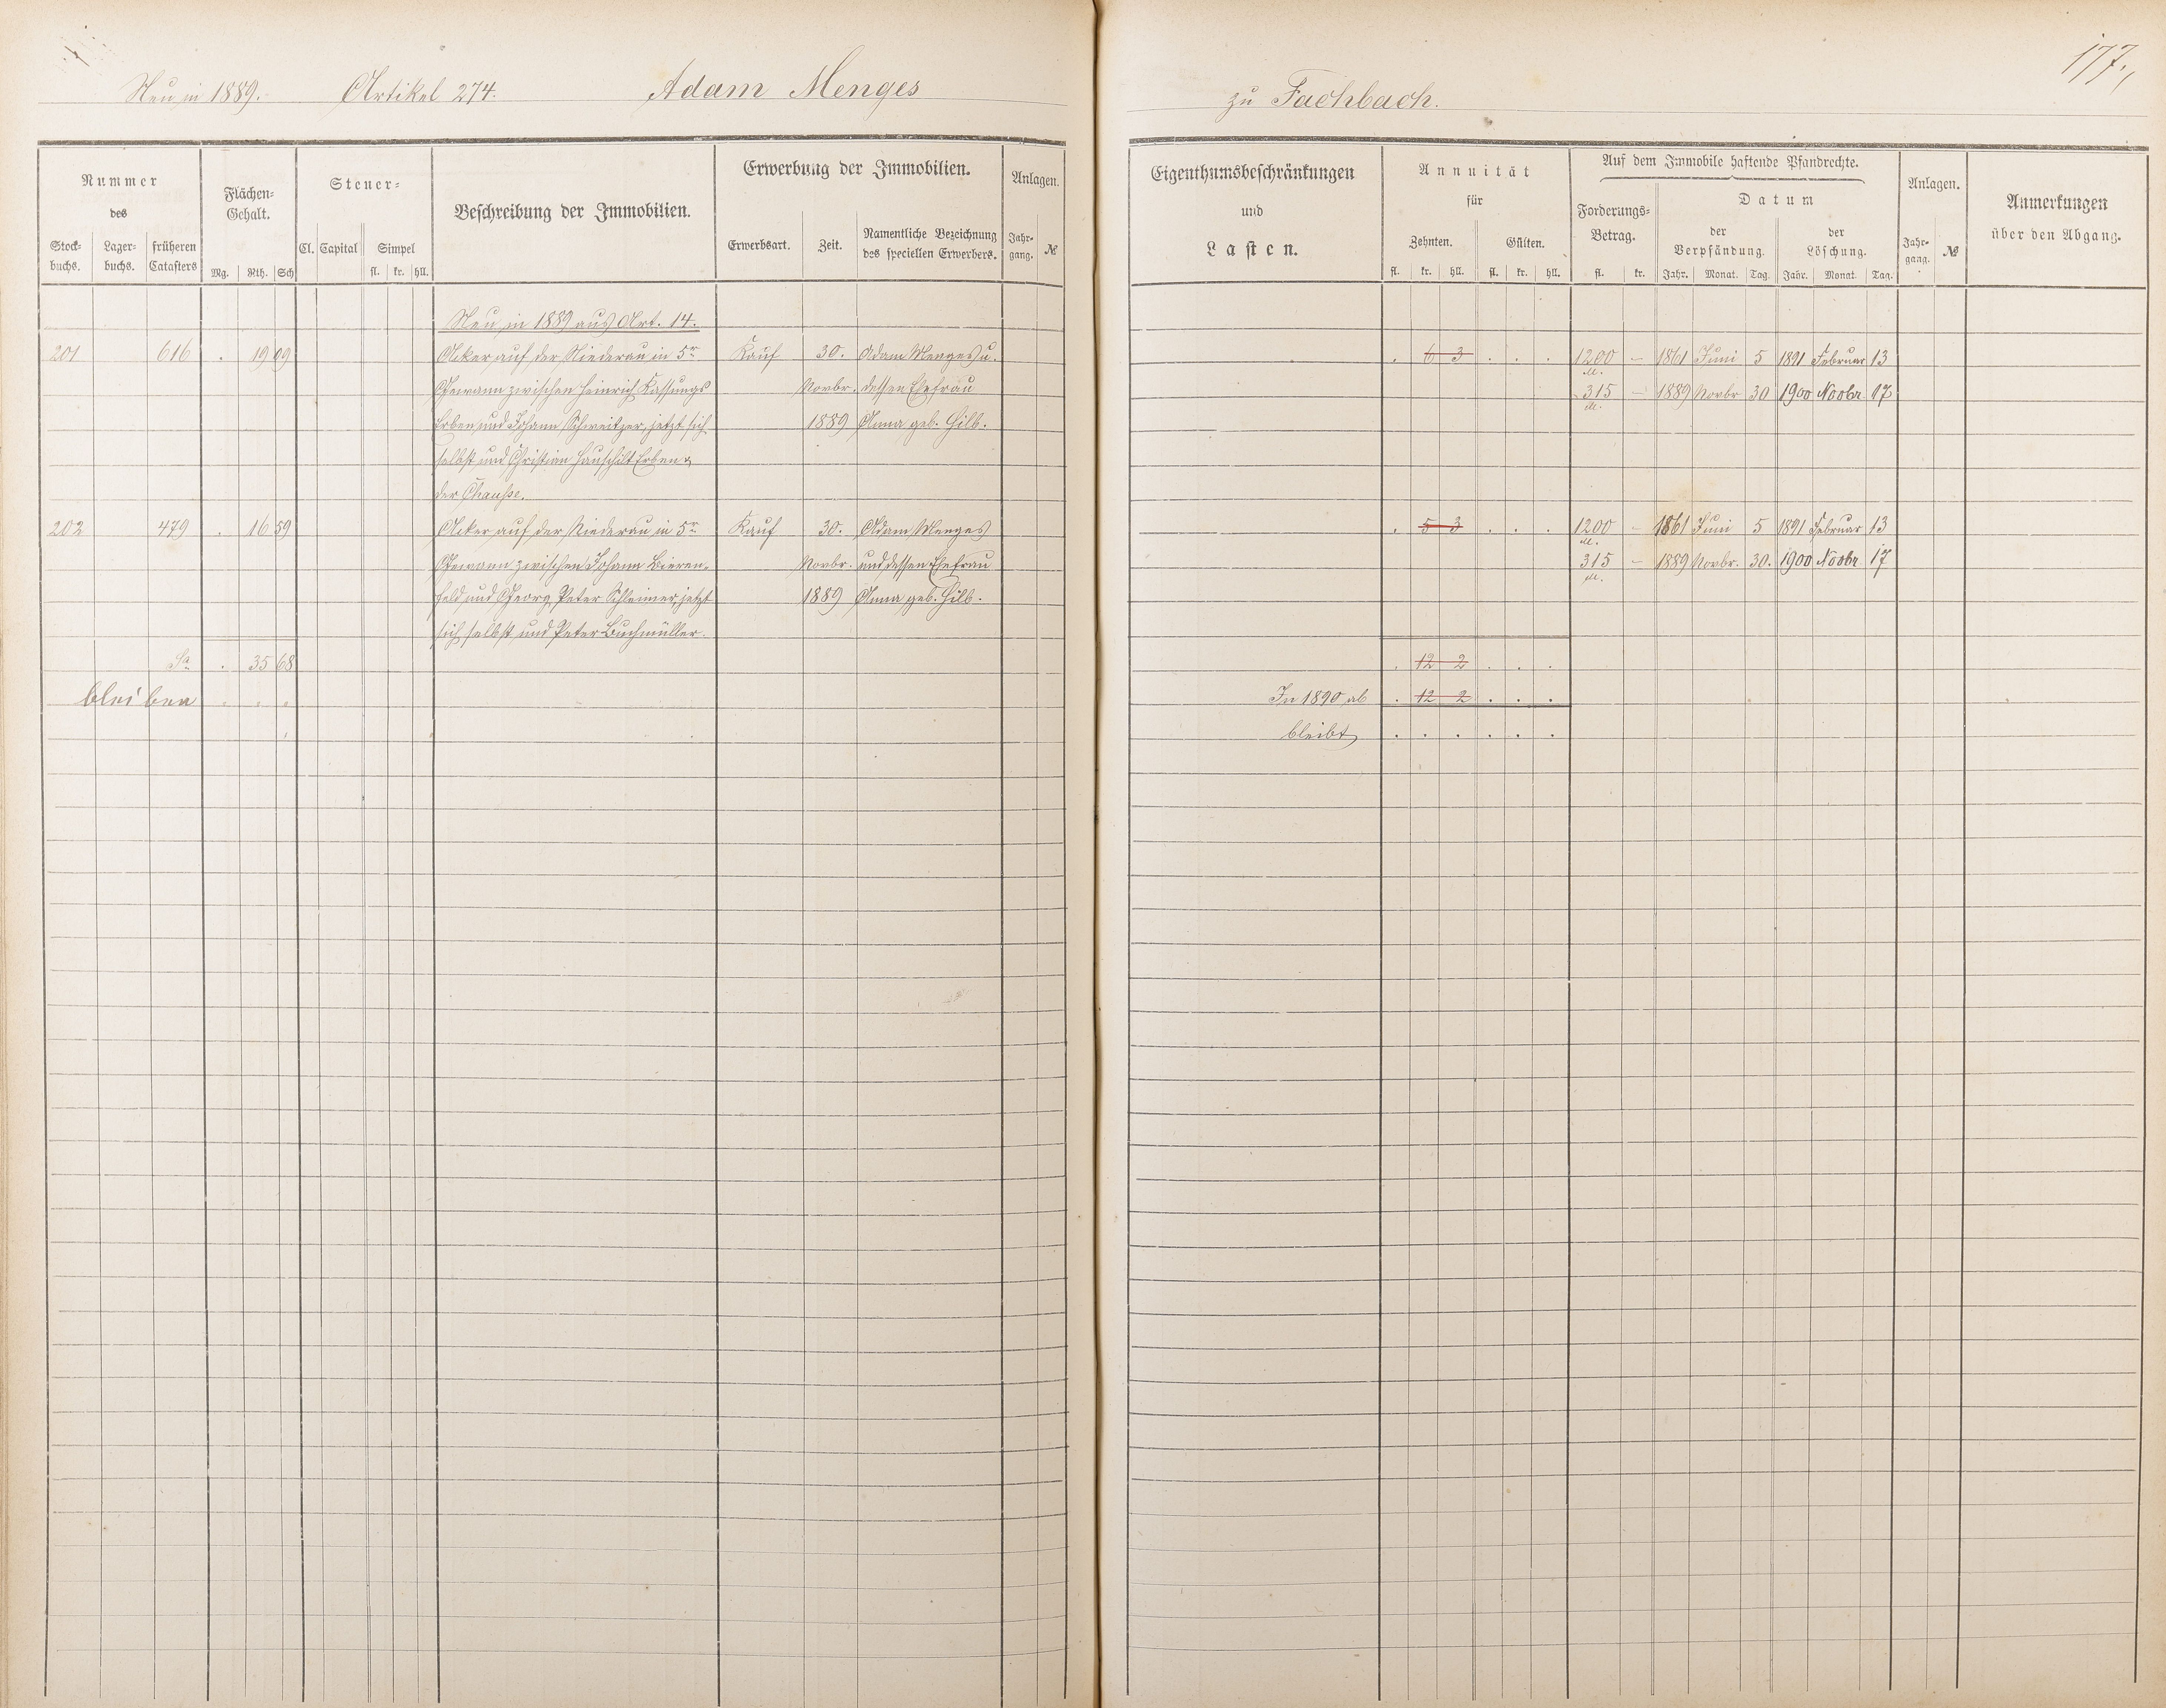 Neu in 1889. Artikel 274. Adam Menges zu Fachbach. 177.
Nummer
des
Stock-
buchs.
Lager-
buchs.
früheren
Catasters
Flächen-
Gehalt.
Mg. Rth. Sch
Steuer-
Cl. Capital Simpel
fl. kr. hll.
Beschreibung der Immobilien.
Erwerbung der Immobilien.
Erwerbsart. Zeit.
Namentliche Bezeichnung
des speciellen Erwerbers.
Anlagen.
Jahr-
gang. №
Eigenthumsbeschränkungen
und
Lasten.
Annuität
für
Zehnten. Gülten.
fl. kr. hll. fl. kr. hll.
Auf dem Immobile haftende Pfandrechte.
Forderungs-
Betrag.
fl. kr.
Datum
der
Verpfändung.
Jahr. Monat. Tag.
der
Löschung.
Jahr. Monat. Tag.
Anlagen.
Jahr-
gang. №
Anmerkungen
über den Abgang.
Neu in 1889 aus Art. 14.
201 616 . 19 09 Acker auf der Niederau in 5r Kauf 30. Adam Menges u. . 6 3 . . . 1200 – 1861 Juni 5 1891 Februar 13
M.
Gewann zwischen Heinrich Kassungs Novbr. dessen Ehefrau 315 – 1889 Novbr 30 1900 Novbr 17
M.
Erben und Johann Schweitzer, jetzt sich 1889 Anna geb. Hilb.
selbst und Christian Hauschilt Erben &
der Chaussee.
202 479 . 16 59 Acker auf der Niederau in 5r Kauf 30. Adam Menges . 5 3 . . . 1200 – 1861 Juni 5 1891 Februar 13
M.
Gewann zwischen Johann Bieren- Novbr. und dessen Ehefrau 315 – 1889 Novbr. 30. 1900 Novbr 17
M.
feld und Georg Peter Schleimer, jetzt 1889 Anna geb. Hilb.
sich selbst und Peter Buchmüller.
Sa . 35 68 . 12 2 . . .
bleiben . . . In 1890 ab . 12 2 . . .
bleibt . . . . . .